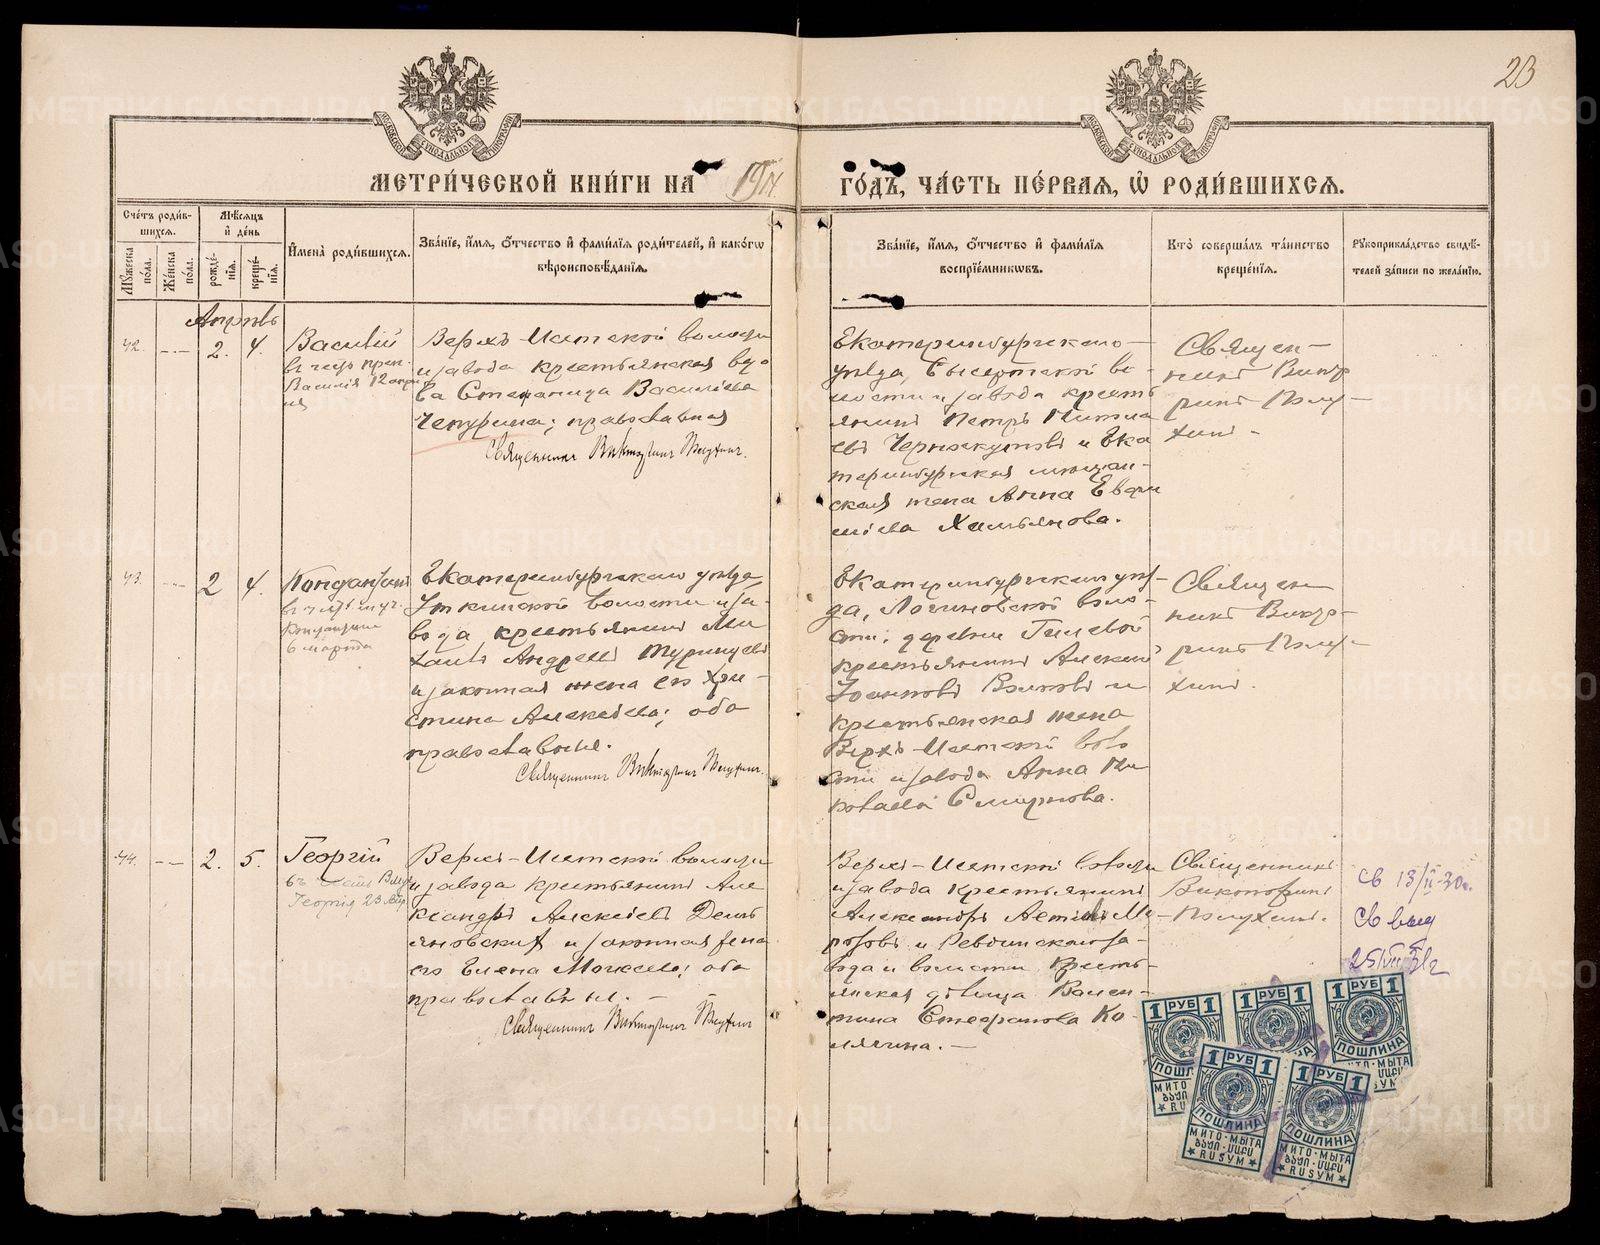 23
МЕТРИ́ЧЕСКОЙ КНИ́ГИ НА 1914 ГО́ДЪ, ЧА́СТЬ ПЕ́РВАЯ, Ѡ҆ РОДИ́ВШИХСЯ.
Сче́тъ роди́вшихся.
Мѣ́сяцъ и҆ де́нь
Мꙋ́жеска по́ла.
Же́нска по́ла.
рожде́нїя.
креще́нїя.
И҆мена̀ роди́вшихся.
Зва́нїе, и҆́мя, ѻ҆́тчество и҆ фами́лїя роди́телей, и҆ како́гѡ вѣроисповѣ́данїя.
Зва́нїе, и҆́мя, ѻ҆́тчество и҆ фами́лїя воспрїе́мникѡвъ.
Кто̀ соверша́лъ та́инство креще́нїя.
Рꙋкоприкла́дство свидѣ́телей за́писи по жела́нїю.
Апрѣль
42.
2.
4.
Василій
въ честь преп.
Василія 12 апрѣ
ля
Верхъ-Исетской волости
и завода крестьянская вдо
ва Стефанида Василіева
Чепурина; православная
Священникъ Викторинъ Полухинъ.
Екатеринбургскаго
уѣзда, Сысертской во-
лости и завода кресть
янинъ Петръ
евъ Черноскутовъ и Ека
теринбургская мѣщан-
ская жена Анна Евфи
міева
Священ-
никъ Викто
ринъ Полу-
хинъ.
43.
2
4.
Константинъ
въ честь муч.
Константина
6 марта
Екатеринбургскаго уѣзда,
Уткинской волости и за-
вода крестьянинъ Ми
хаилъ Андреевъ
и законная жена его Хри-
стина Алексіева; оба
православные.
Священникъ Викторинъ Полухинъ.
Екатеринбургскаго уѣз-
да, Логиновской воло-
сти, деревни Гилевой
крестьянинъ Алексій
Іоанновъ Волковъ и
крестьянская жена
Верхъ-Исетской воло
сти и завода Анна Ни
колаева Смирнова.
Священ
никъ Викто-
ринъ Полу-
хинъ.
44.
2.
5.
Георгій
въ честь Велик.
Георгія 23 Апр
Верхъ-Исетской волости
и завода крестьянинъ Але
ксандръ Алексіевъ Демь
яновскихъ и законная жена
его Елена Моисеева; оба
православные.
Священникъ Викторинъ Полухинъ
Верхъ-Исетской волости
и завода крестьянинъ
Александръ Мо-
розовъ и Ревдинскаго за-
вода и волости кресть-
янская дѣвица Вален-
тина Стефанова Ко-
лягина.
Священникъ
Викторинъ
Полухинъ.
св 13/II-30г.
Св выд
25/VII 31г
1 РУБ 1
1 РУБ 1
1 РУБ 1
ПОШЛИНА
1 РУБ 1
ПОШЛИНА
МИТО-МЫТА
RUSYM
1 РУБ 1
ПОШЛИНА
МИТО-МЫТА
RUSYM
METRIKI.GASO-URAL.RU